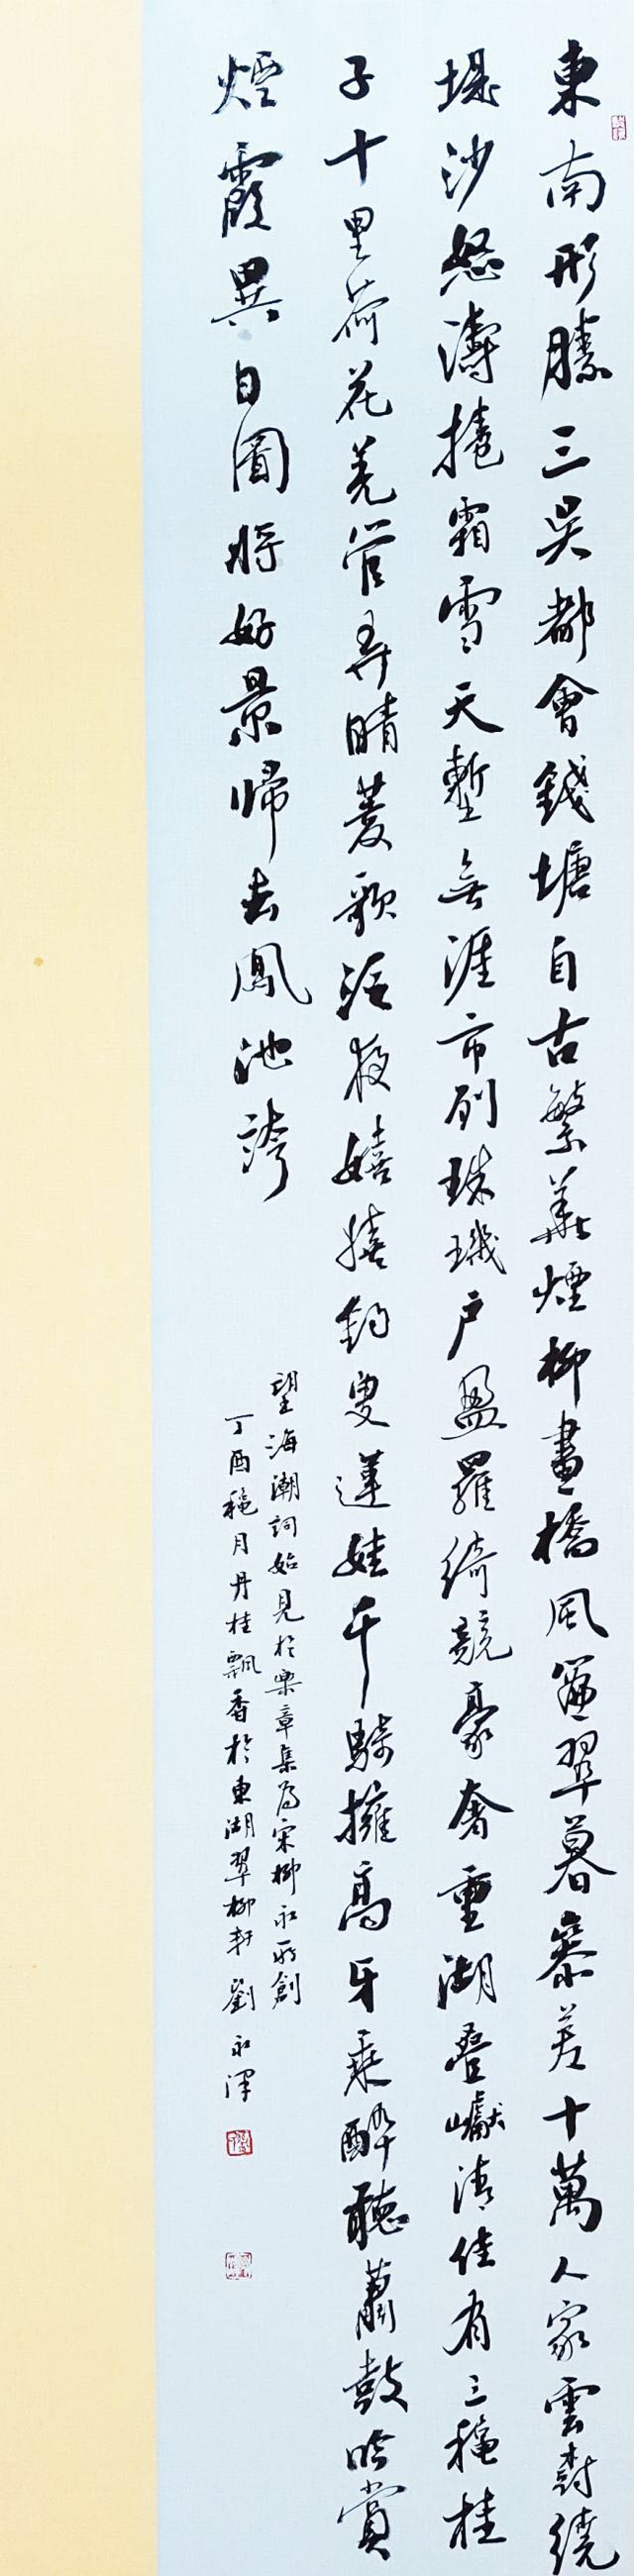 東南形勝三吳都會錢塘自古繁華煙柳畫橋風簾翠幕參差十萬人家雲樹繞
堤沙怒濤捲霜雪天塹無涯市列珠璣户盈羅綺競豪奢重湖疊巘清佳有三穐桂
子十里荷花羌管弄晴菱歌泛夜嬉嬉釣叟蓮娃千騎擁高牙乘醉聽蕭鼓吟賞
煙霞異日圖將好景歸去鳳池誇
望海潮詞始見於樂章集為宋柳永所創
丁酉穐月丹桂飄香於東湖翠柳軒劉永澤